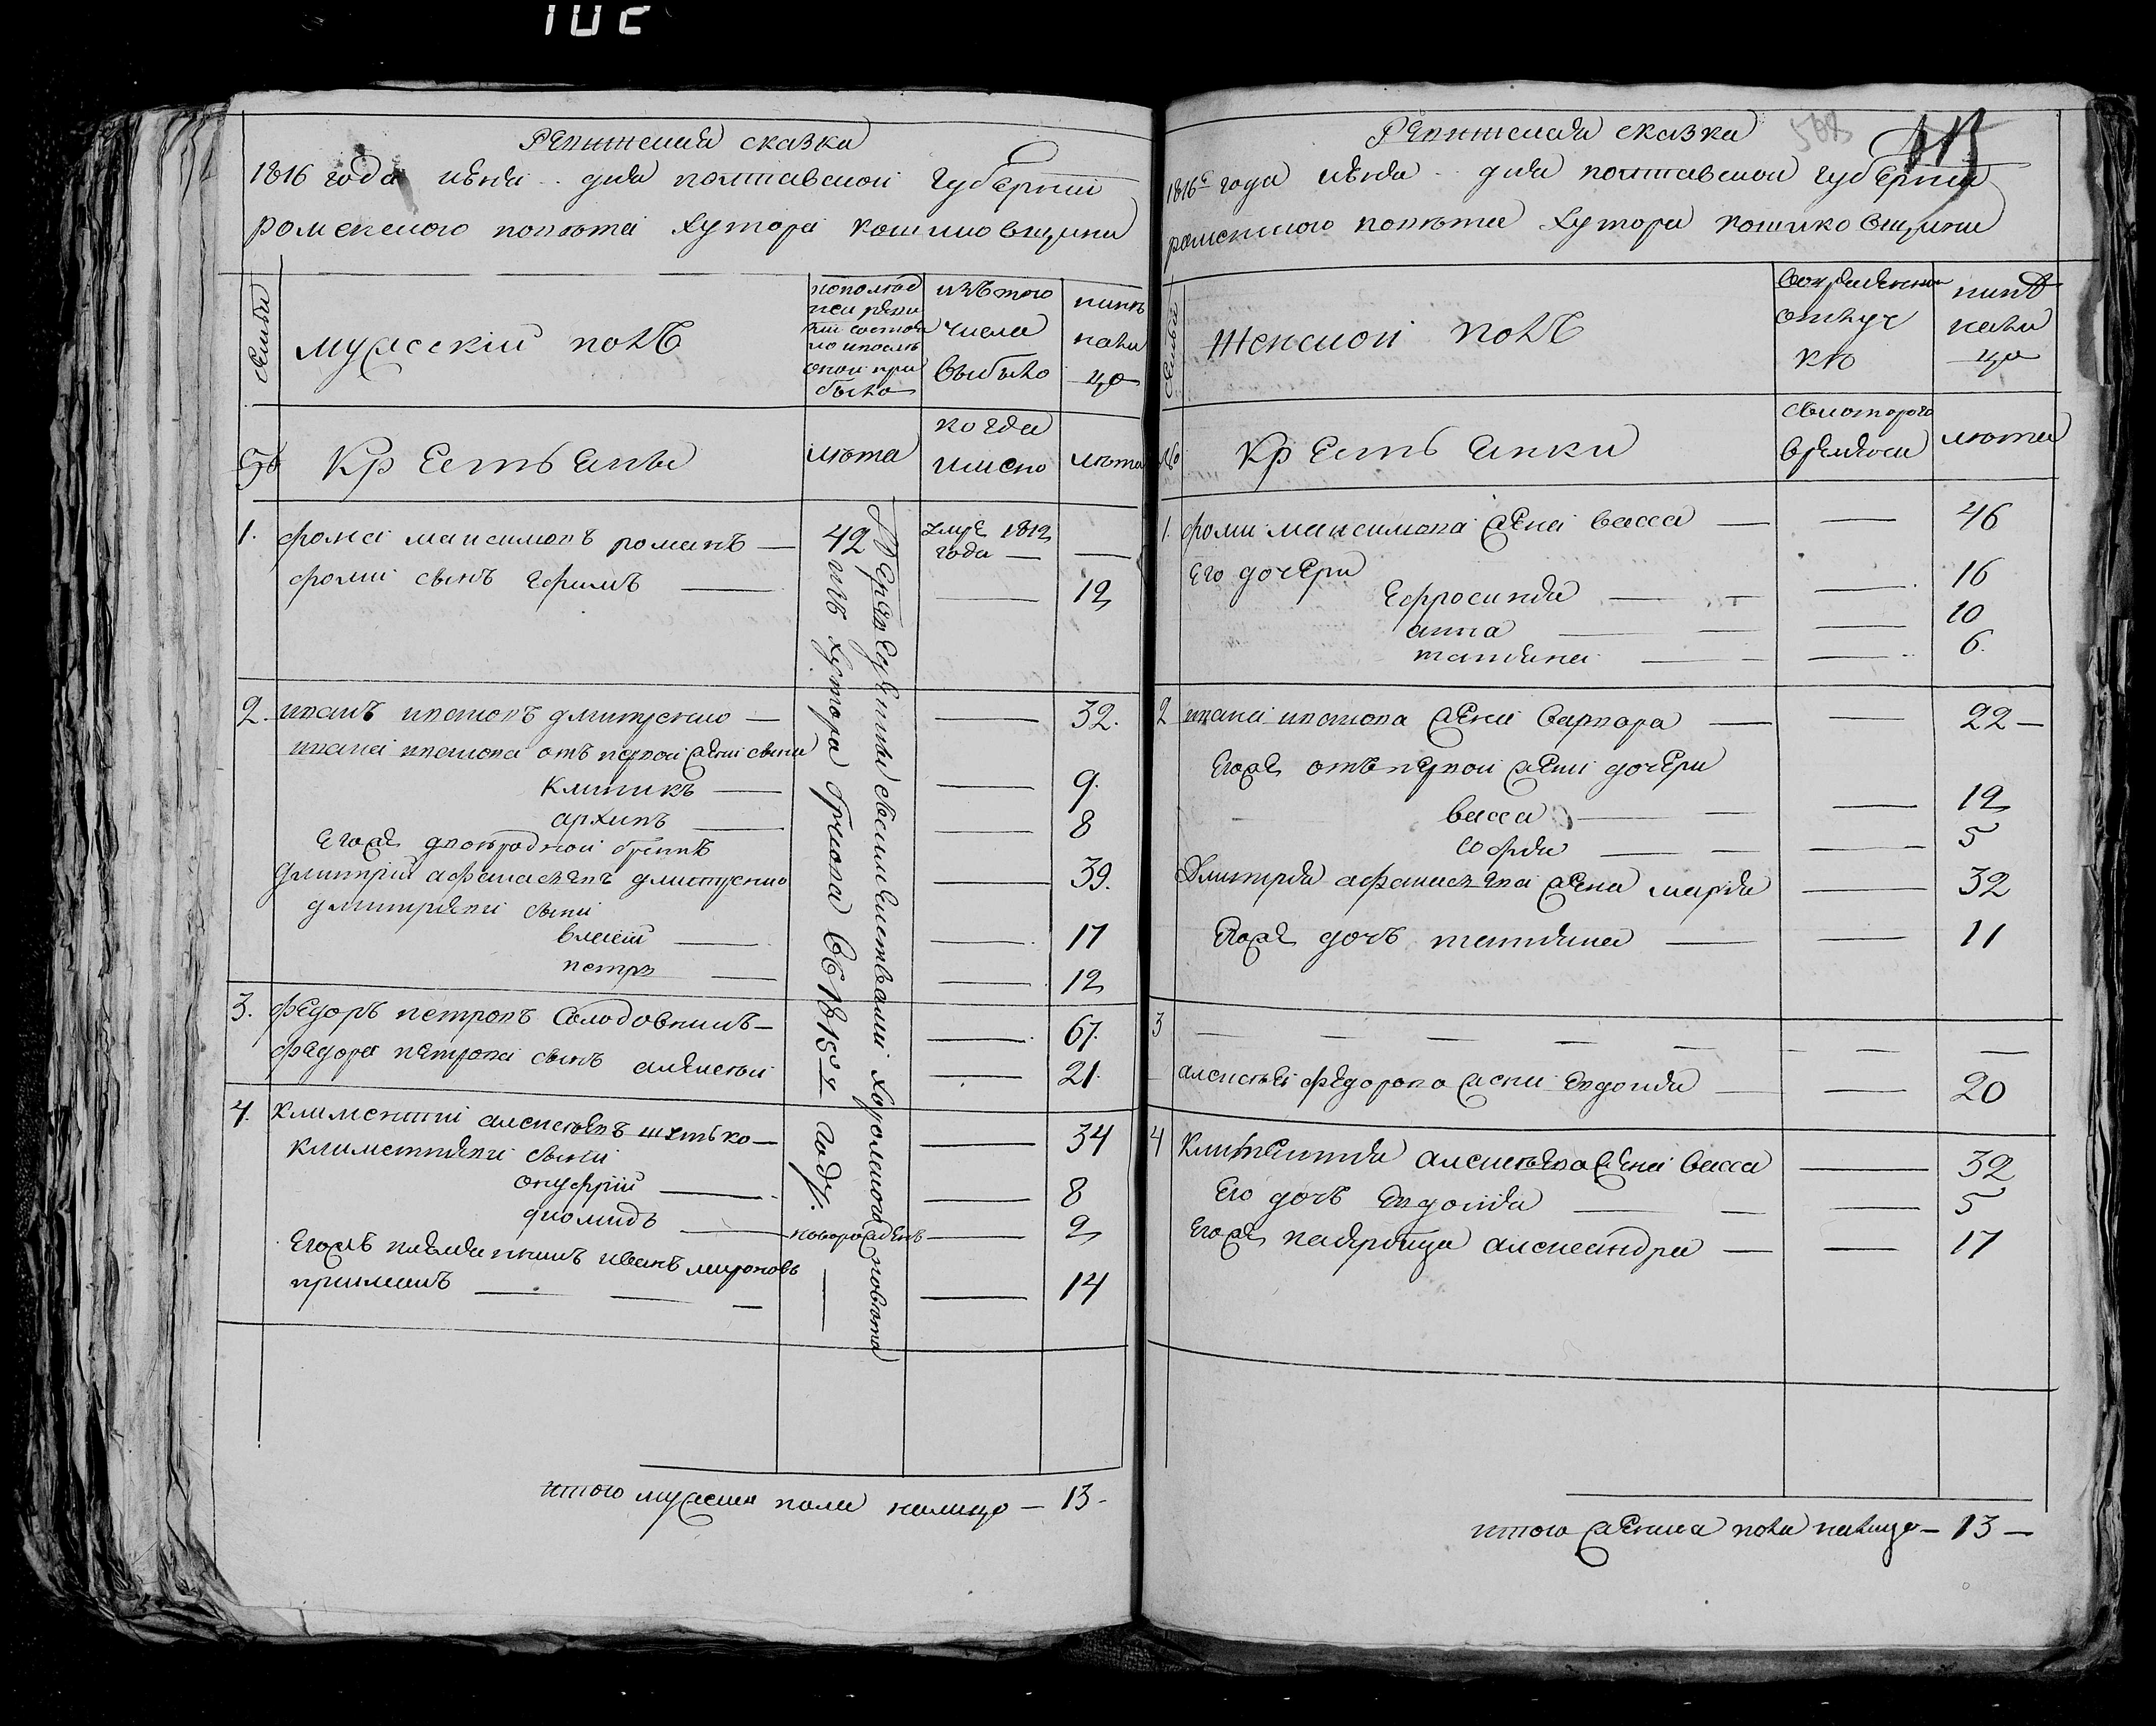 Ревижская сказка
1816 года м҃ца .. дня полтавской губернии
роменского повѣта хутора кошиковщины
семьи
мужеский полъ
по последней ревизии состояло и после оной прибыло
изъ того числа выбыло
нынѣ налицо
№
Крестьяне
лѣта
когда имено
лѣта
1. фома максимовъ романъ — 42 умре 1812 года — —
фоми сынъ ефимъ — — 12
2. иванъ ивановъ дмитренко — — 32.
ивана иванова отъ первой жени сыни
климъ — — 9.
архипъ — — 8
Егожъ двоюродной братъ
дмитрій афанасиевъ дмитренко — 39.
дмитриеви сыни
власій — — 17
петръ — — 12
3. федоръ петровъ солодовникъ — — 67.
федора петрова сынъ алексей — 21.
4. климентій алексеевъ шетько — — 34
климентиеви сыни
онуфрій — — 8
диомидъ — новорожденъ — 2
Егожъ племянникъ иванъ мироновъ
приймакъ — — — — 14
переведенни съ семействами хорольского повѣта
изъ хутора съ 1815го году.
итого мужеска пола налицо — 13 -
Ревижская сказка
568
1816г года м҃ца .. дня полтавской губернии
роменского повѣта хутора кошиковщини
семьи
женской полъ
во временной отлучке
нинѣ налицо
№
Крестьянки
съ которого времени
лѣта
1. фоми максимова жена васса — — 46
Его дочери
Ефросиния — — — 16
анна — — — 10
татияна — — — 6.
2 ивана иванова жена варвара — — 22 —
Егоже отъ первой жени дочери
васса — — — 12
софия — — — 5
дмитрия афанасиева жена мария — 32
Егоже дочь татияна — — 11
3 — — — — — — — —
алексея федорова жена евдокия — — 20
4 климентия алексеева жена васса — 32
Его дочь евдокия — — — 5
Егоже падчерица александра — — 17
итого женска пола налицо — 13 —